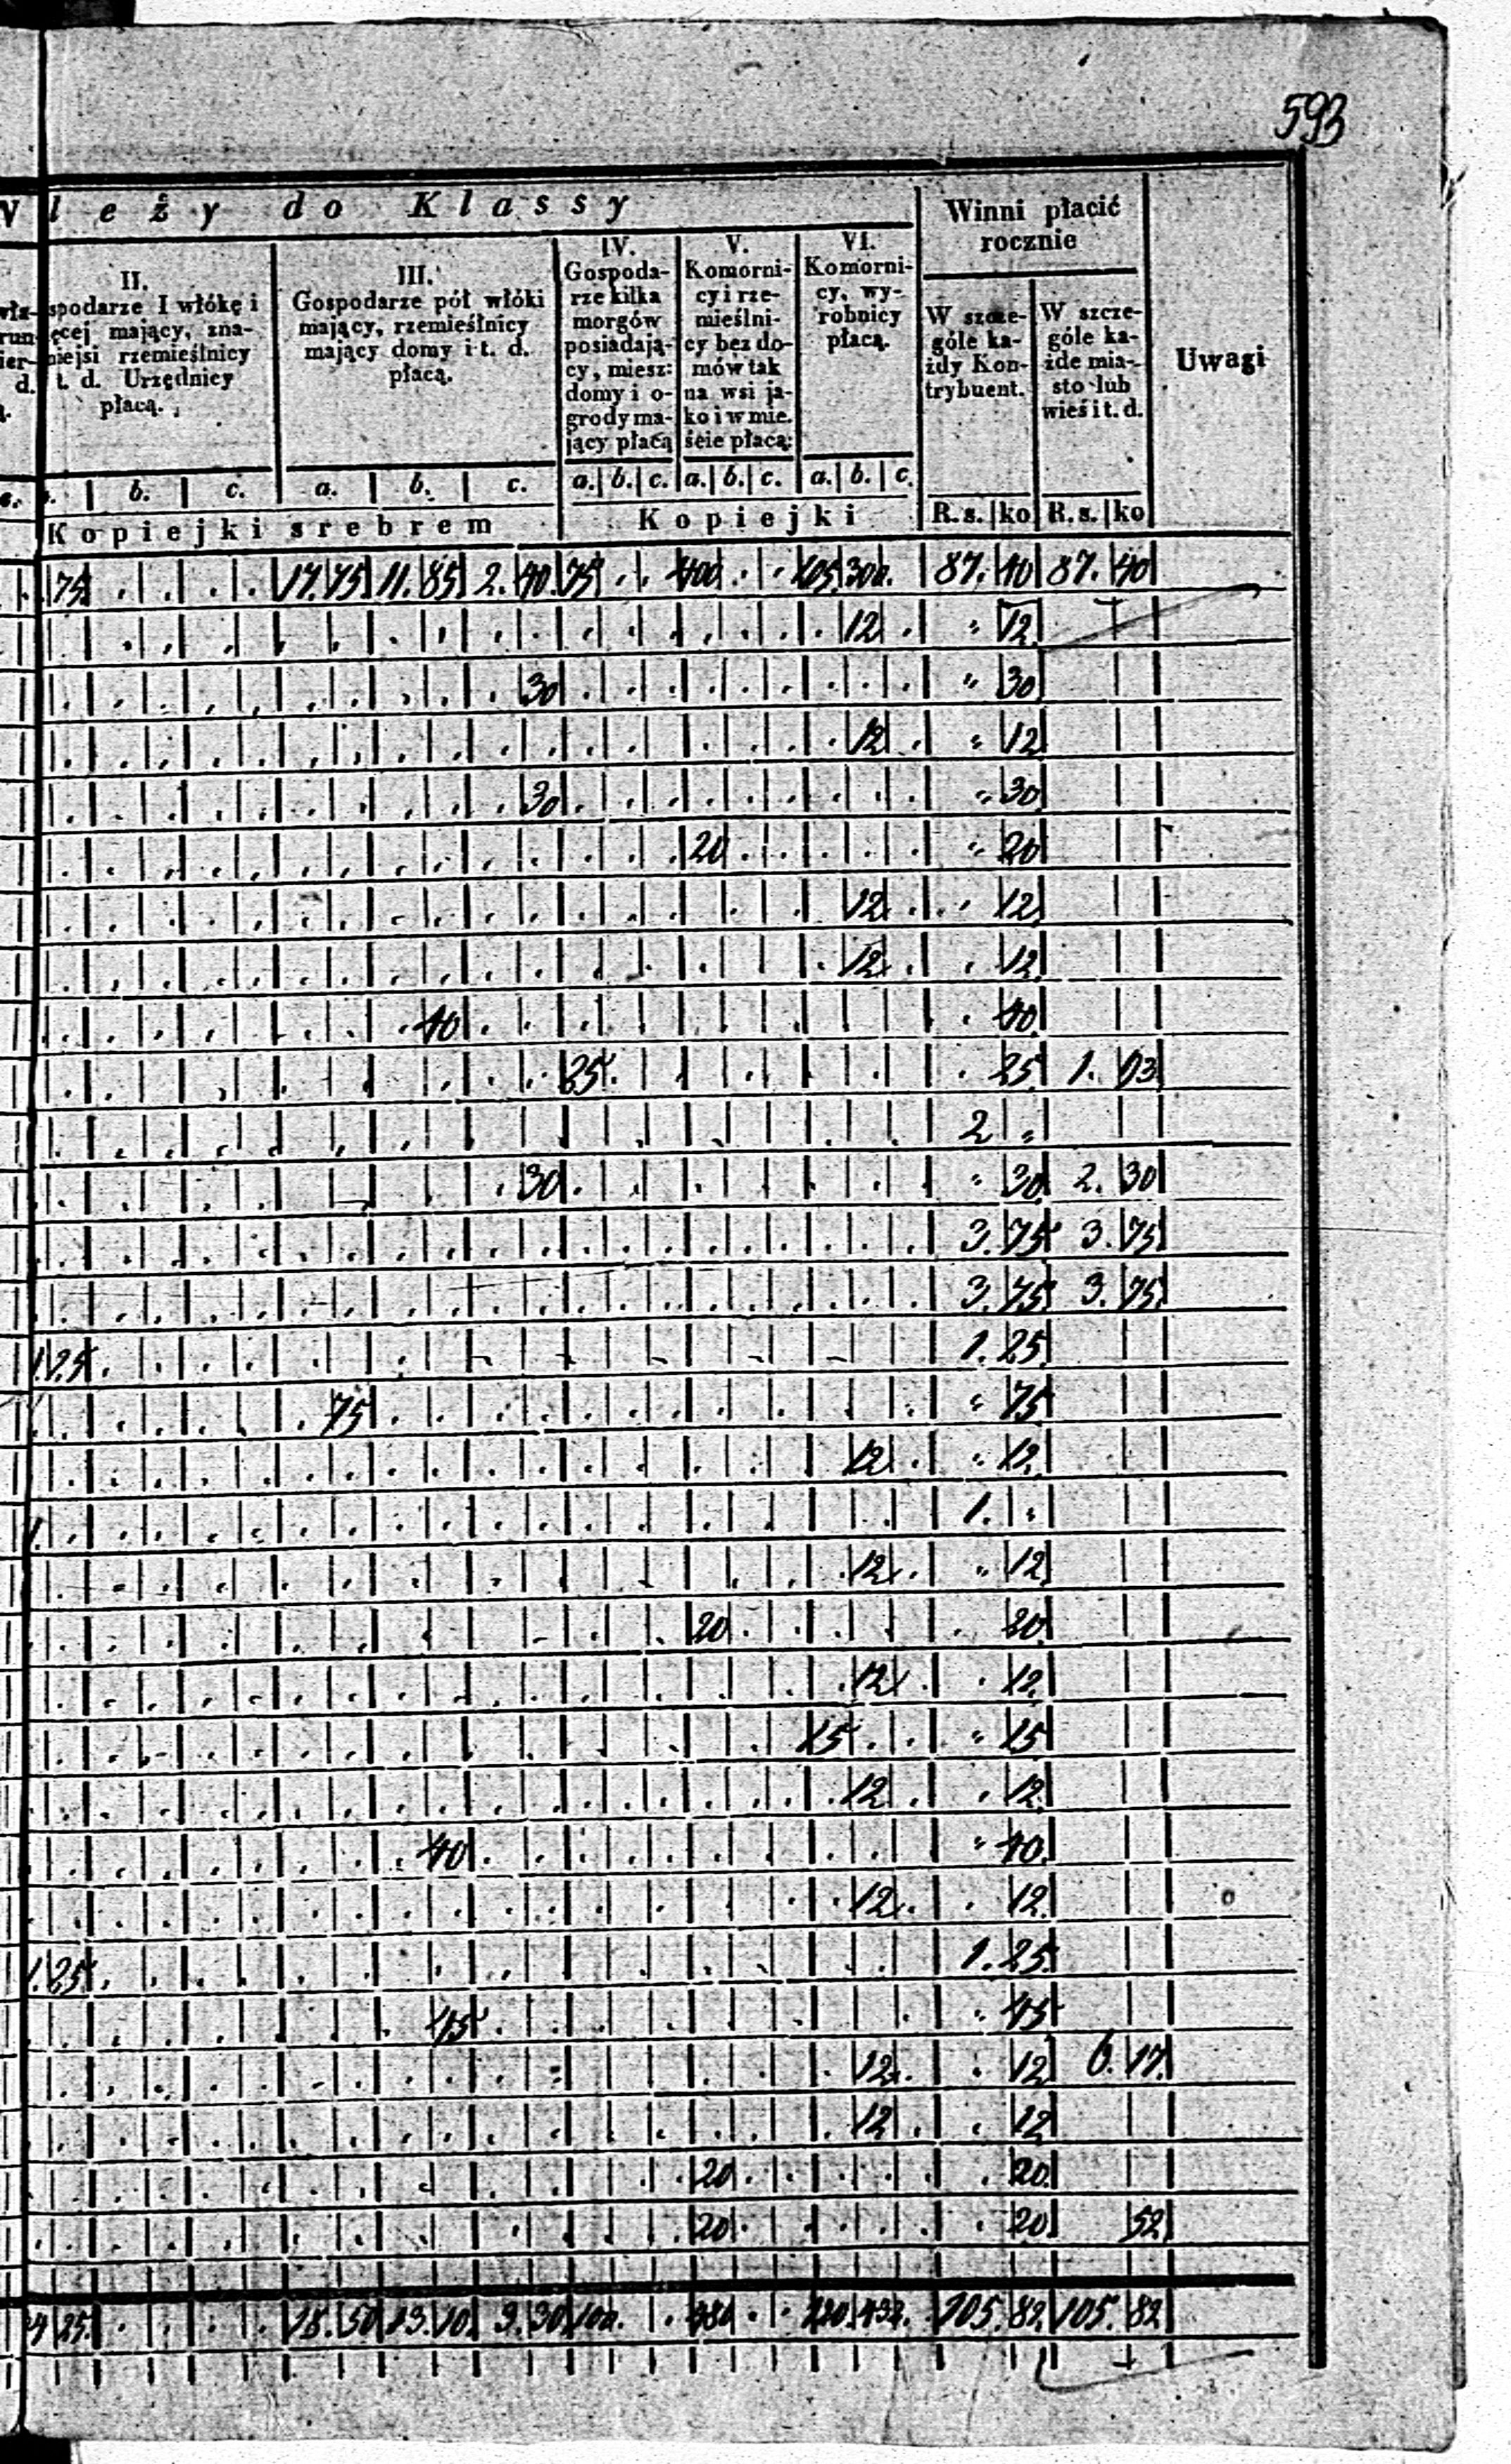 593
leży do Klassy
Winni płacić
rocznie
Uwagi
II.
spodarze I włókę i
ęcej mający, zna-
niejsi rzemieślnicy
t. d. Urzędnicy
płacą.
III.
Gospodarze pół włóki
mający, rzemieślnicy
mający domy i t. d.
płacą.
IV.
Gospoda-
rze kilka
morgów
posiadają-
cy, miesz:
domy i o-
grody ma-
jący płacą
V.
Komorni-
cy i rze-
mieślni-
cy bez do-
mów tak
na wsi ja-
ko i w mie.
ście płacą:
VI.
Komorni-
cy, wy-
robnicy
płacą.
W szcze-
góle ka-
żdy Kon-
trybuent.
W szcze-
góle ka-
żde mia-
sto lub
wieś i t. d.
b. c. a. b. c. a. b. c. a. b. c. a. b. c.
Kopiejki srebrem Kopiejki R. s. ko R. s. ko
75 17. 75 11. 85 2. 40 75 400 105 300 87. 40 87. 40
12 " 12
30 " 30
12 " 12
30 " 30
20 " 20
12 12
12 12
40 40
25 25 1. 93
2 "
30 " 30 2. 30
3. 75 3. 75
3. 75 3. 75
1. 25 1. 25
75 " 75
12 " 12
1. 1. "
12 " 12
20 20
12 12
15 " 15
12 12
40 " 40
12 12
1. 25 1. 25
45 " 45
12 12 6. 17
12 12
20 20
20 20 52
25 18. 50 13. 10 3. 30 100 432 105. 82 105. 82